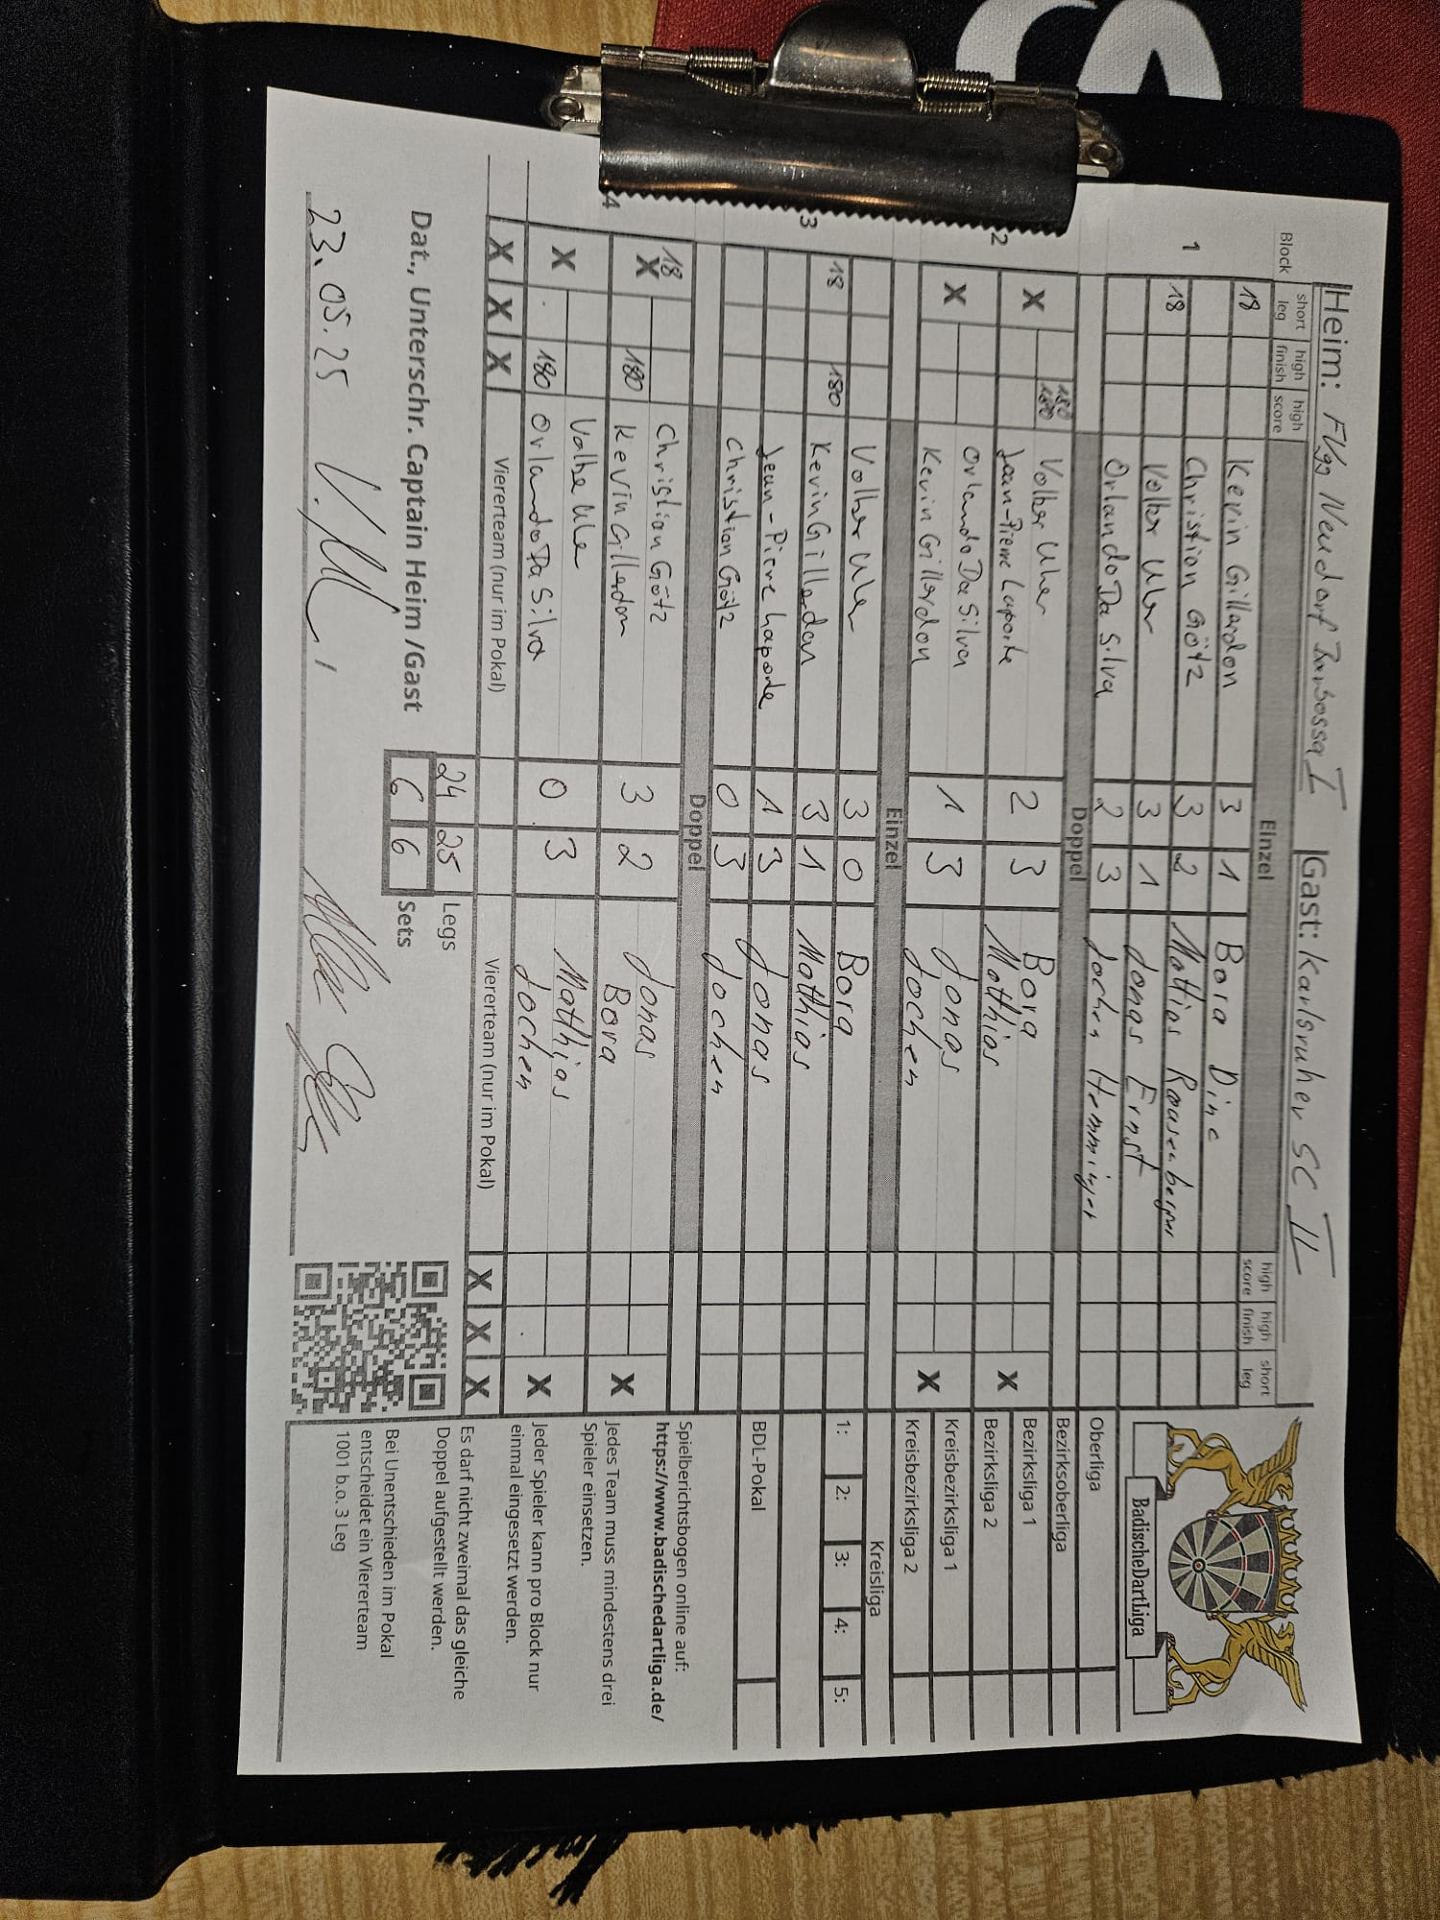 Heim: FVgg Neudorf Barbossa I Gast: Karlsruher SC II
Block short leg high finish high score Einzel high score high finish short leg
1 18 Kevin Gillardon 3 1 Bora Dinc
Christian Götz 3 2 Mattias Rausenberger
18 Volker Uler 3 1 Jonas Ernst
Orlando Da Silva 2 3 Jochen Hemminger
Doppel
2 X 180 180 Volker Uler 2 3 Bora X
Jean-Pierre Laporte Mathias
X Orlando Da Silva 1 3 Jonas X
Kevin Gillardon Jochen
Einzel
3 Volker Uler 3 0 Bora
18 180 Kevin Gillardon 3 1 Mathias
Jean-Pierre Laporte 1 3 Jonas
Christian Götz 0 3 Jochen
Doppel
4 18 X 180 Christian Götz 3 2 Jonas X
Kevin Gillardon Bora
X 180 Volke Uler 0 3 Matthias X
Orlando Da Silva Jochen
X X X Viererteam (nur im Pokal) Viererteam (nur im Pokal) X X X
24 25 Legs
Dat., Unterschr. Captain Heim /Gast 6 6 Sets
23.05.25
BadischeDartLiga
Oberliga
Bezirksoberliga
Bezirksliga 1
Bezirksliga 2
Kreisbezirksliga 1
Kreisbezirksliga 2
Kreisliga
1: 2: 3: 4: 5:
BDL-Pokal
Spielberichtsbogen online auf:
https://www.badischedartliga.de/
Jedes Team muss mindestens drei
Spieler einsetzen.
Jeder Spieler kann pro Block nur
einmal eingesetzt werden.
Es darf nicht zweimal das gleiche
Doppel aufgestellt werden.
Bei Unentschieden im Pokal
entscheidet ein Viererteam
1001 b.o. 3 Leg